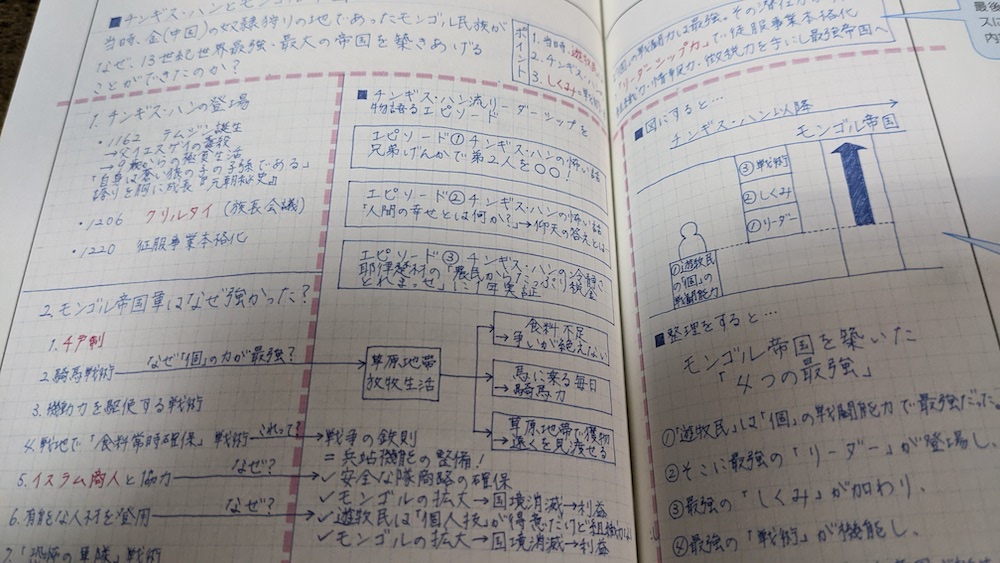 ■チンギス・ハンとモンゴル帝国
当時、金(中国)の奴隷狩りの地であったモンゴル民族が
なぜ、13世紀世界最強・最大の帝国を築きあげる
ことができたのか?
ポイント
1. 当時、遊牧民
2. チンギス・
3. しくみ
1. チンギス・ハンの登場
・1162 テムジン誕生
→父イエスゲイの毒殺
→9歳からの極貧生活
「自身は蒼い狼の子の子孫である」
誇りを胸に成長『元朝秘史』
・1206 クリルタイ(族長会議)
・1220 征服事業本格化
2. モンゴル帝国軍はなぜ強かった?
1. チア制
2. 騎馬戦術
なぜ「個」の力が最強?
3. 機動力を駆使する戦術
4. 戦地で「食料常時確保」戦術
これって?
5. イスラム商人と協力
なぜ?
6. 有能な人材を登用
なぜ?
7. 「恐怖の軍隊」戦術
■チンギス・ハン流リーダーシップを
物語るエピソード
エピソード① チンギス・ハンの怖い話
兄弟げんかで第2人を〇〇!
エピソード② チンギス・ハンの怖い話
「人間の幸せとは何か?」→仰天の答えとは
エピソード③ チンギス・ハンの冷静さ
耶律楚材の「農民からたっぷり税金
とれまっせ」に1年実証
草原地帯
放牧生活
食料不足
→争いが絶えない
馬に乗る毎日
→騎馬力
草原地帯で獲物
→遠くを見渡せる
戦争の鉄則
=兵站機能の整備!
✓安全な隊商路の確保
✓モンゴルの拡大→国境消滅→利益
✓遊牧民は「個人技」が得意だけど組織力は
✓モンゴルの拡大→国境消滅→利益
「個」の戦闘力は最強。その潜在力が
「リーダーシップ力」で征服事業本格化
組織力・情報力・徴税力を手にし最強帝国へ
■図にすると…
チンギス・ハン以降
モンゴル帝国
③戦術
②しくみ
①リーダー
①遊牧民
の「個」の
戦闘能力
■整理をすると…
モンゴル帝国を築いた
「4つの最強」
①「遊牧民」は「個」の戦闘能力で最強だった
②そこに最強の「リーダー」が登場し、
③最強の「しくみ」が加わり、
④最強の「戦術」が機能し、
最後
内